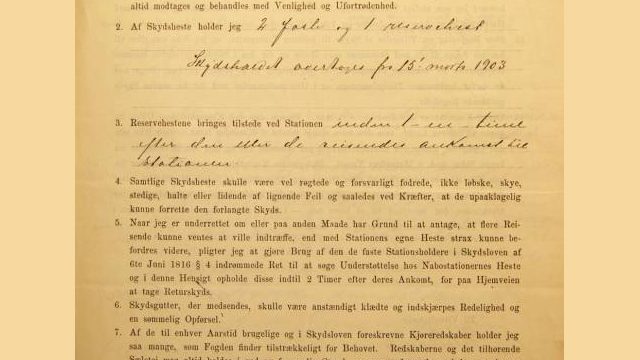 altid modtages og behandles med Venlighed og Ufortrødenhed.
2. Af Skydsheste holder jeg 2 faste og 1 reservehest
Skydsholdet overtages fra 15' marts 1903
3. Reservehestene bringes tilstede ved Stationen inden 1 - en - time
efter den eller de reisendes ankomst til
stationen
4. Samtlige Skydsheste skulle være vel røgtede og forsvarligt fodrede, ikke løbske, skye,
stedige, halte eller lidende af lignende Feil og saaledes ved Kræfter, at de upaaklagelig
kunne forrette den forlangte Skyds.
5. Naar jeg er underrettet om eller paa anden Maade har Grund til at antage, at flere Rei-
sende kunne ventes at ville indtræffe, end med Stationens egne Heste strax kunne be-
fordres videre, pligter jeg at gjøre Brug af den de faste Stationsholdere i Skydsloven af
6te Juni 1816 § 4 indrømmede Ret til at søge Understøttelse hos Nabostationernes Heste
og i denne Hensigt opholde disse indtil 2 Timer efter deres Ankomt, for paa Hjemveien
at tage Returskyds.
6. Skydsgutter, der medsendes, skulle være anstændigt klædte og indskjærpes Redelighed og
en sømmelig Opførsel.
7. Af de til enhver Aarstid brugelige og i Skydsloven foreskrevne Kjøreredskaber holder jeg
saa mange, som Fogden finder tilstrækkeligt for Behovet. Redskaberne og det tilhørende